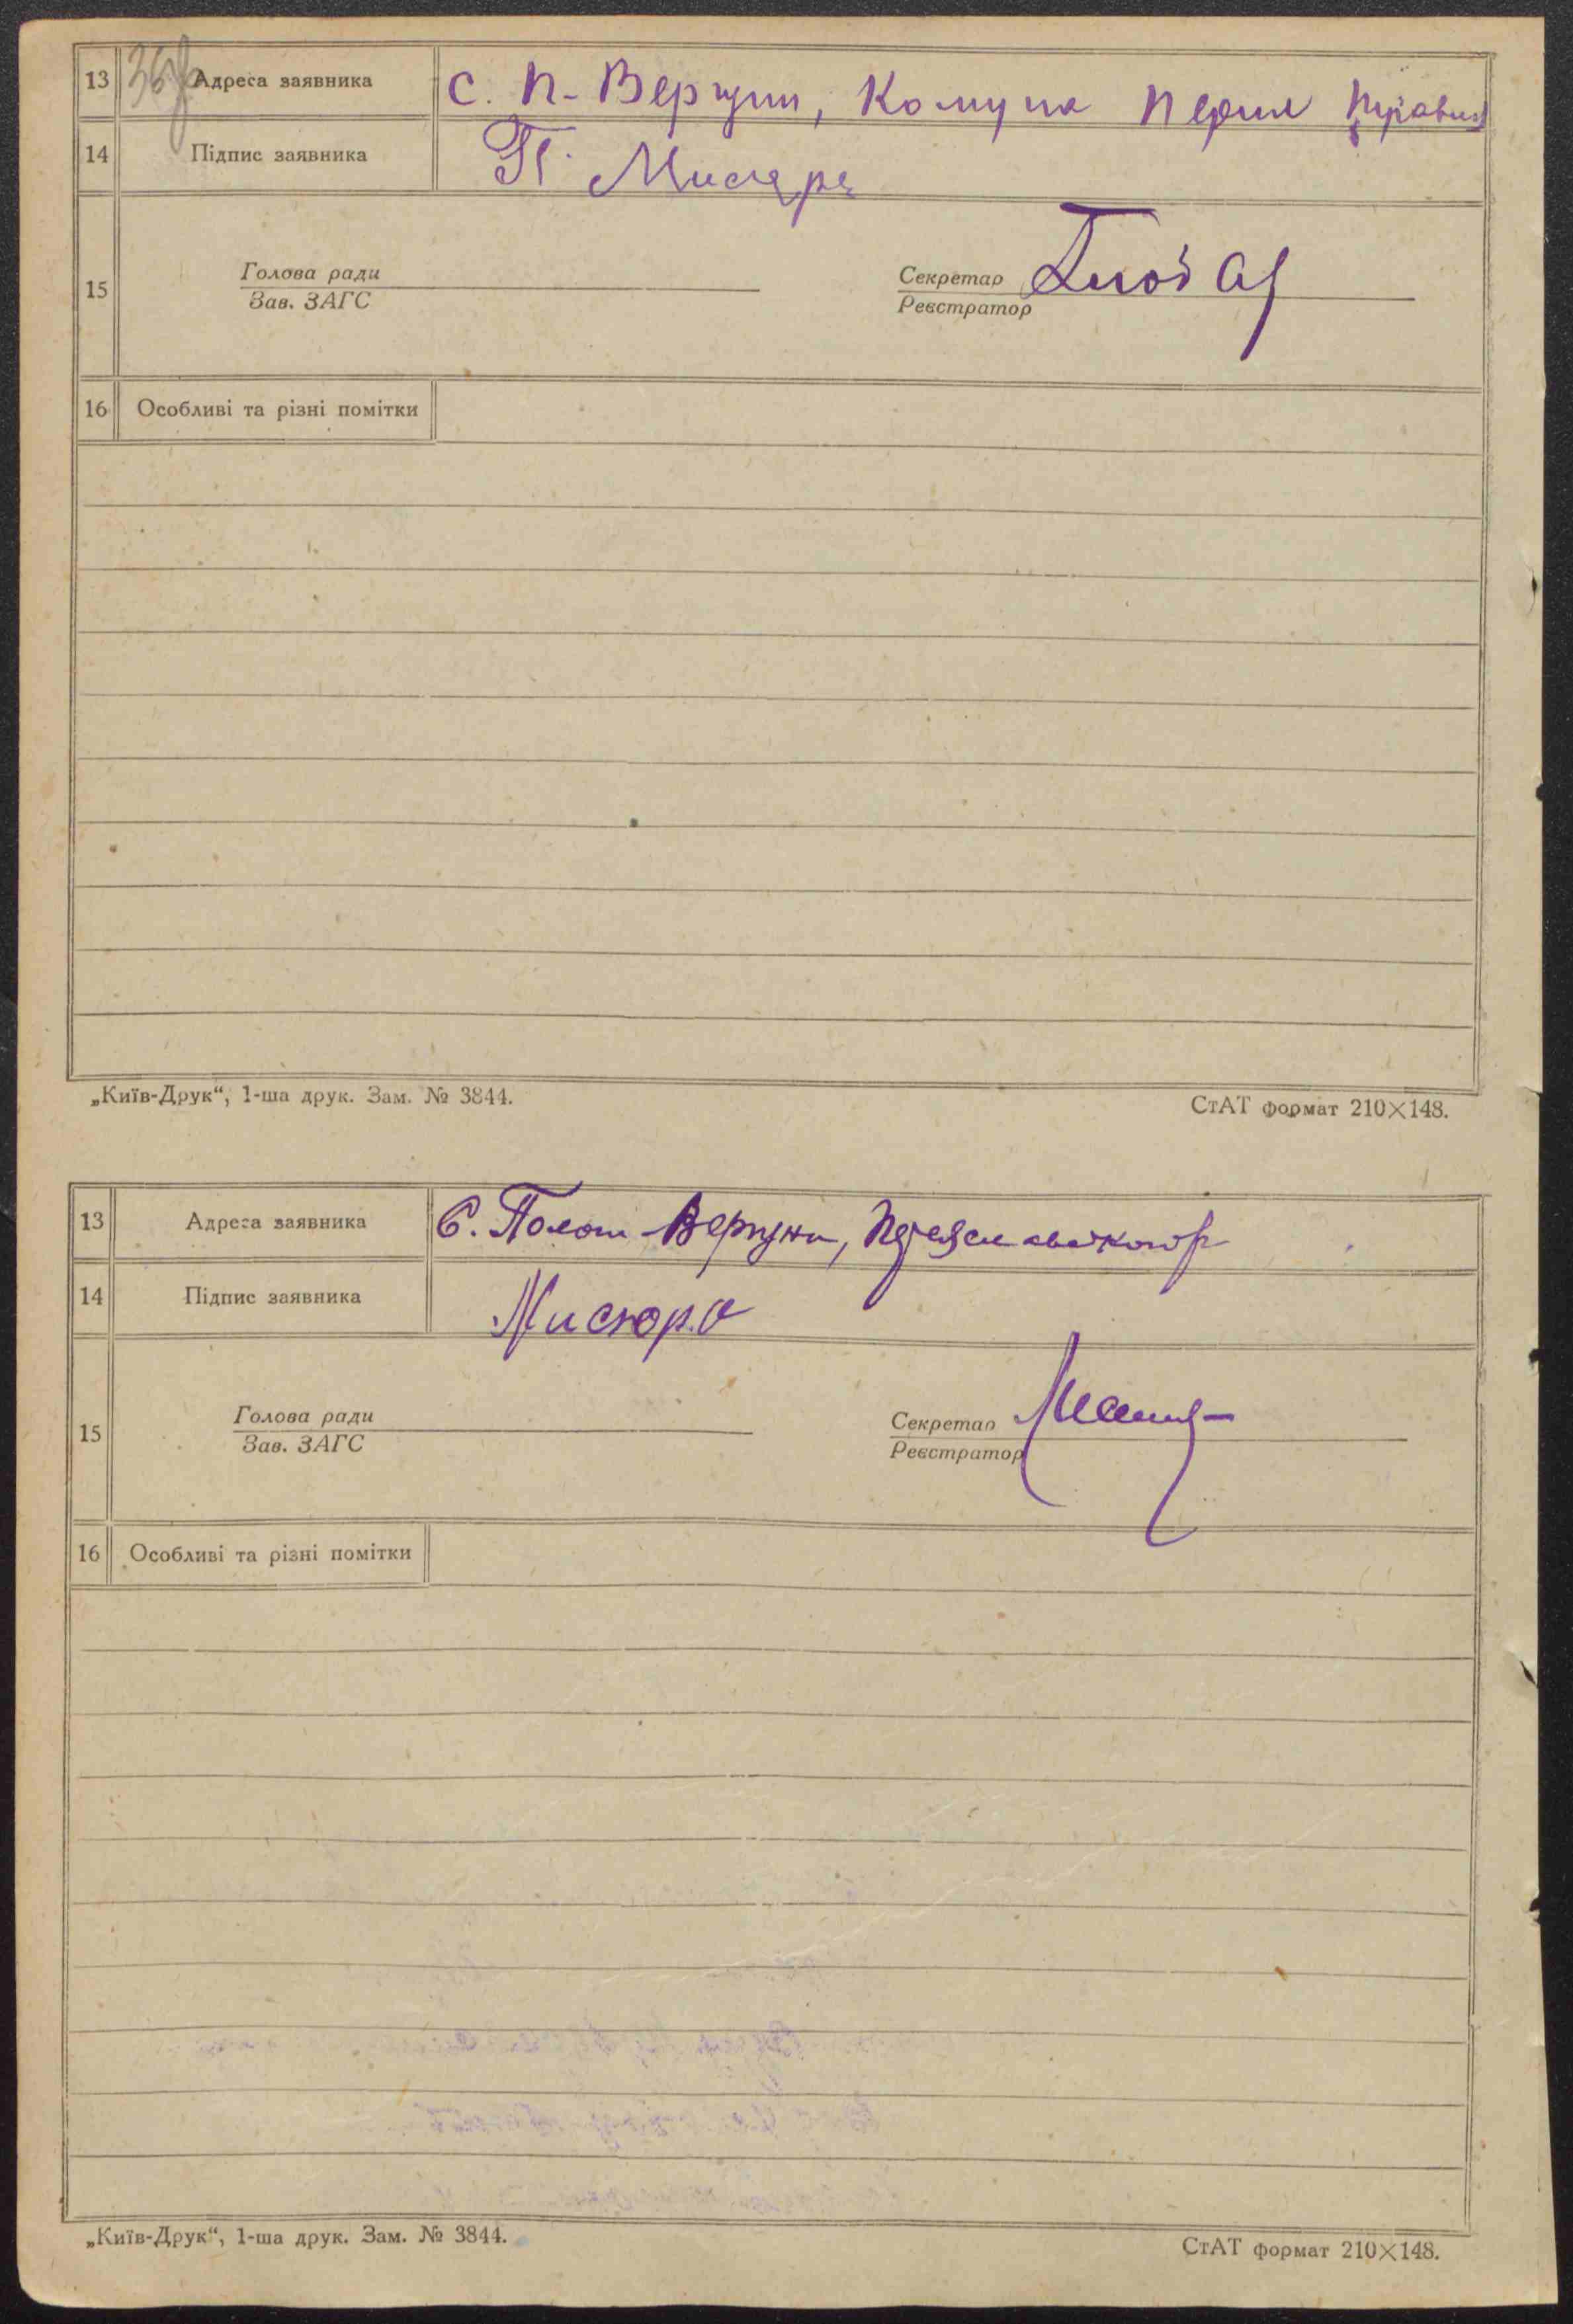 13 Адреса заявника С. П-Вергуни, Комуна
14 Підпис заявника П. Мисюра
Голова ради Секретар
15
Зав. ЗАГС Реєстратор
16 Особливі та різні помітки
„Київ-Друк“, 1-ша друк. Зам. № 3844. СтАТ формат 210×148.
13 Адреса заявника С. Полот-Вергуни,
14 Підпис заявника Мисюра
Голова ради Секретар
15
Зав. ЗАГС Реєстратор
16 Особливі та різні помітки
„Київ-Друк“, 1-ша друк. Зам. № 3844. СтАТ формат 210×148.